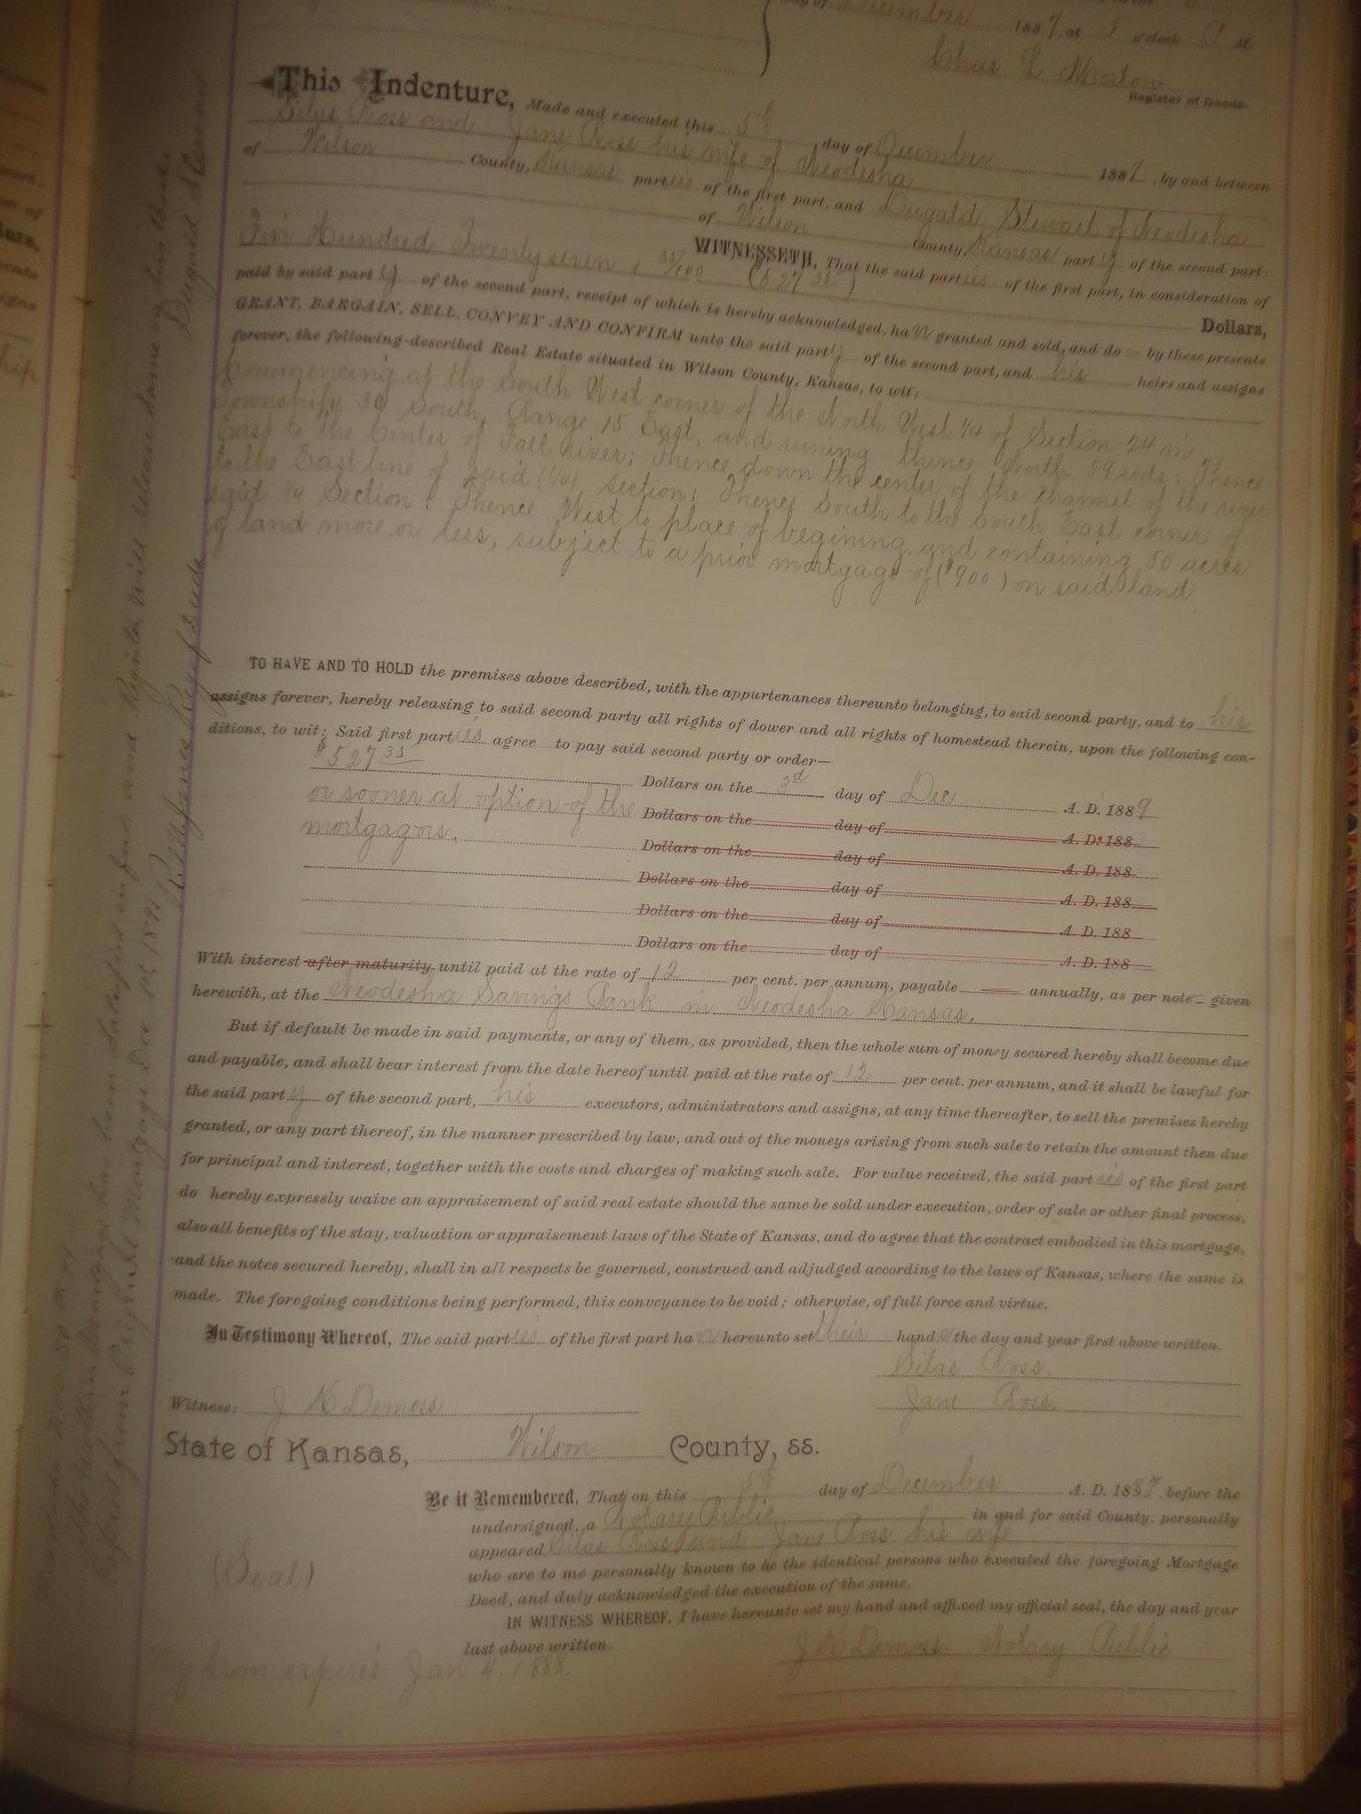 day of December 1887, at 3 o'clock P M.
Chas L Morton
Register of Deeds.
This Indenture, Made and executed this 5th day of December 1887, by and between
Silas Ross and Jane Ross his wife of Neodesha
of Wilson County, Kansas parties of the first part, and Dugald Stewart of Neodesha
of Wilson County Kansas part y of the second part:
WITNESSETH, That the said parties of the first part, in consideration of
Five Hundred Twenty seven & 35/100 ($527 35) Dollars,
paid by said part y of the second part, receipt of which is hereby acknowledged, have granted and sold, and do by these presents
GRANT, BARGAIN, SELL, CONVEY AND CONFIRM unto the said party of the second part, and his heirs and assigns
forever, the following-described Real Estate situated in Wilson County, Kansas, to wit:
Commencing at the South West corner of the North West 1/4 of Section 24 in
Township 30 South, Range 15 East, and runing thence North 89 rods; Thence
East to the Center of Fall River; Thence down the center of the channel of the river
to the East line of said (1/4) section; Thence South to the South East corner of
said 1/4 Section; Thence West to place of begining and containing 80 acres
of land more or less, subject to a prior mortgage of ($900) on said land
TO HAVE AND TO HOLD the premises above described, with the appurtenances thereunto belonging, to said second party, and to his
assigns forever, hereby releasing to said second party all rights of dower and all rights of homestead therein, upon the following con-
ditions, to wit: Said first parties agree to pay said second party or order—
$527 35 Dollars on the 3d day of Dec A. D. 1889
or sooner at option of the Dollars on the day of A. D. 188
mortgagors. Dollars on the day of A. D. 188
Dollars on the day of A. D. 188
Dollars on the day of A. D. 188
Dollars on the day of A. D. 188
With interest after maturity until paid at the rate of 12 per cent. per annum, payable annually, as per note given
herewith, at the Neodesha Savings Bank in Neodesha Kansas.
But if default be made in said payments, or any of them, as provided, then the whole sum of money secured hereby shall become due
and payable, and shall bear interest from the date hereof until paid at the rate of 12 per cent. per annum, and it shall be lawful for
the said part y of the second part, his executors, administrators and assigns, at any time thereafter, to sell the premises hereby
granted, or any part thereof, in the manner prescribed by law, and out of the moneys arising from such sale to retain the amount then due
for principal and interest, together with the costs and charges of making such sale. For value received, the said parties of the first part
do hereby expressly waive an appraisement of said real estate should the same be sold under execution, order of sale or other final process,
also all benefits of the stay, valuation or appraisement laws of the State of Kansas, and do agree that the contract embodied in this mortgage,
and the notes secured hereby, shall in all respects be governed, construed and adjudged according to the laws of Kansas, where the same is
made. The foregoing conditions being performed, this conveyance to be void; otherwise, of full force and virtue.
In Testimony Whereof, The said parties of the first part have hereunto set their hands the day and year first above written.
Silas Ross.
Witness: J K Demoss Jane Ross.
State of Kansas, Wilson County, ss.
Be it Remembered, That on this 5th day of December A. D. 1887, before the
undersigned, a Notary Public in and for said County, personally
appeared Silas Ross and Jane Ross his wife
who are to me personally known to be the identical persons who executed the foregoing Mortgage
Deed, and duly acknowledged the execution of the same.
(Seal)
IN WITNESS WHEREOF, I have hereunto set my hand and affixed my official seal, the day and year
last above written.
J K Demoss Notary Public
My Com expires Jan 4. 1888.
The within Mortgage has been satisfied in full and Register will release same on his Books
Dugald Stewart
Copied from Original Mortgage Dec 1st 1891
Reg of Deeds